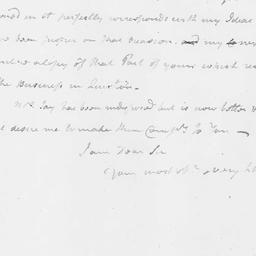 in it perfectly corresponds with my Ideas
been proper on that Occasion. and my
a copy of that Part of yours which
the Business in Question.
Mrs. Jay has been indisposed but is now better
desire me to make their Compts. to You —
I am Dear Sir
Your most obt. & very h